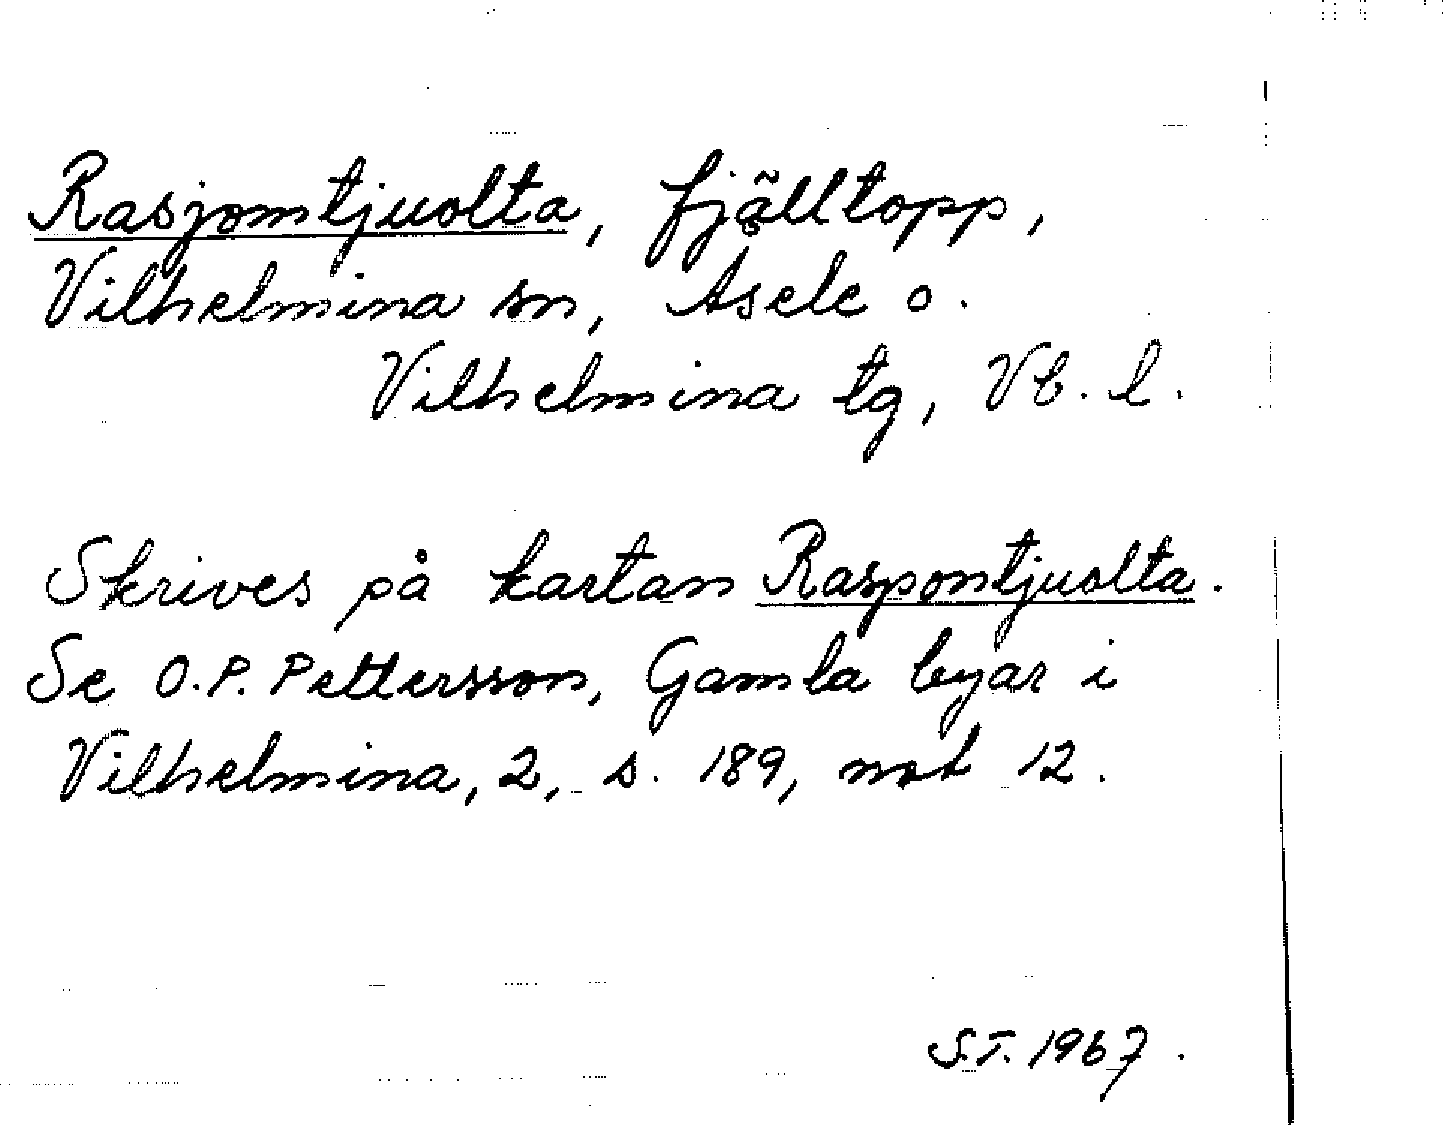 Rasjomtjuolta, fjälltopp,
Vilhelmina sn, Åsele o.
Vilhelmina tg, Vb. l.
Skrives på kartan Raspontjuolta.
Se O.P. Pettersson, Gamla byar i
Vilhelmina, 2, s. 189, not 12.
S.T. 1967.